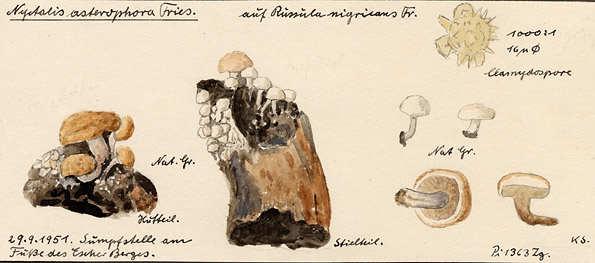 Nyctalis asterophora Fries. auf Russula nigricans Fr.
1000:1
16µ Ø
Clamydospore
Nat. Gr.
Nat Gr.
Hutteil.
Stielteil.
29.9.1951. Sumpfstelle am
Fuße des Escher Berges.
KS.
Pi 1363 Zg.